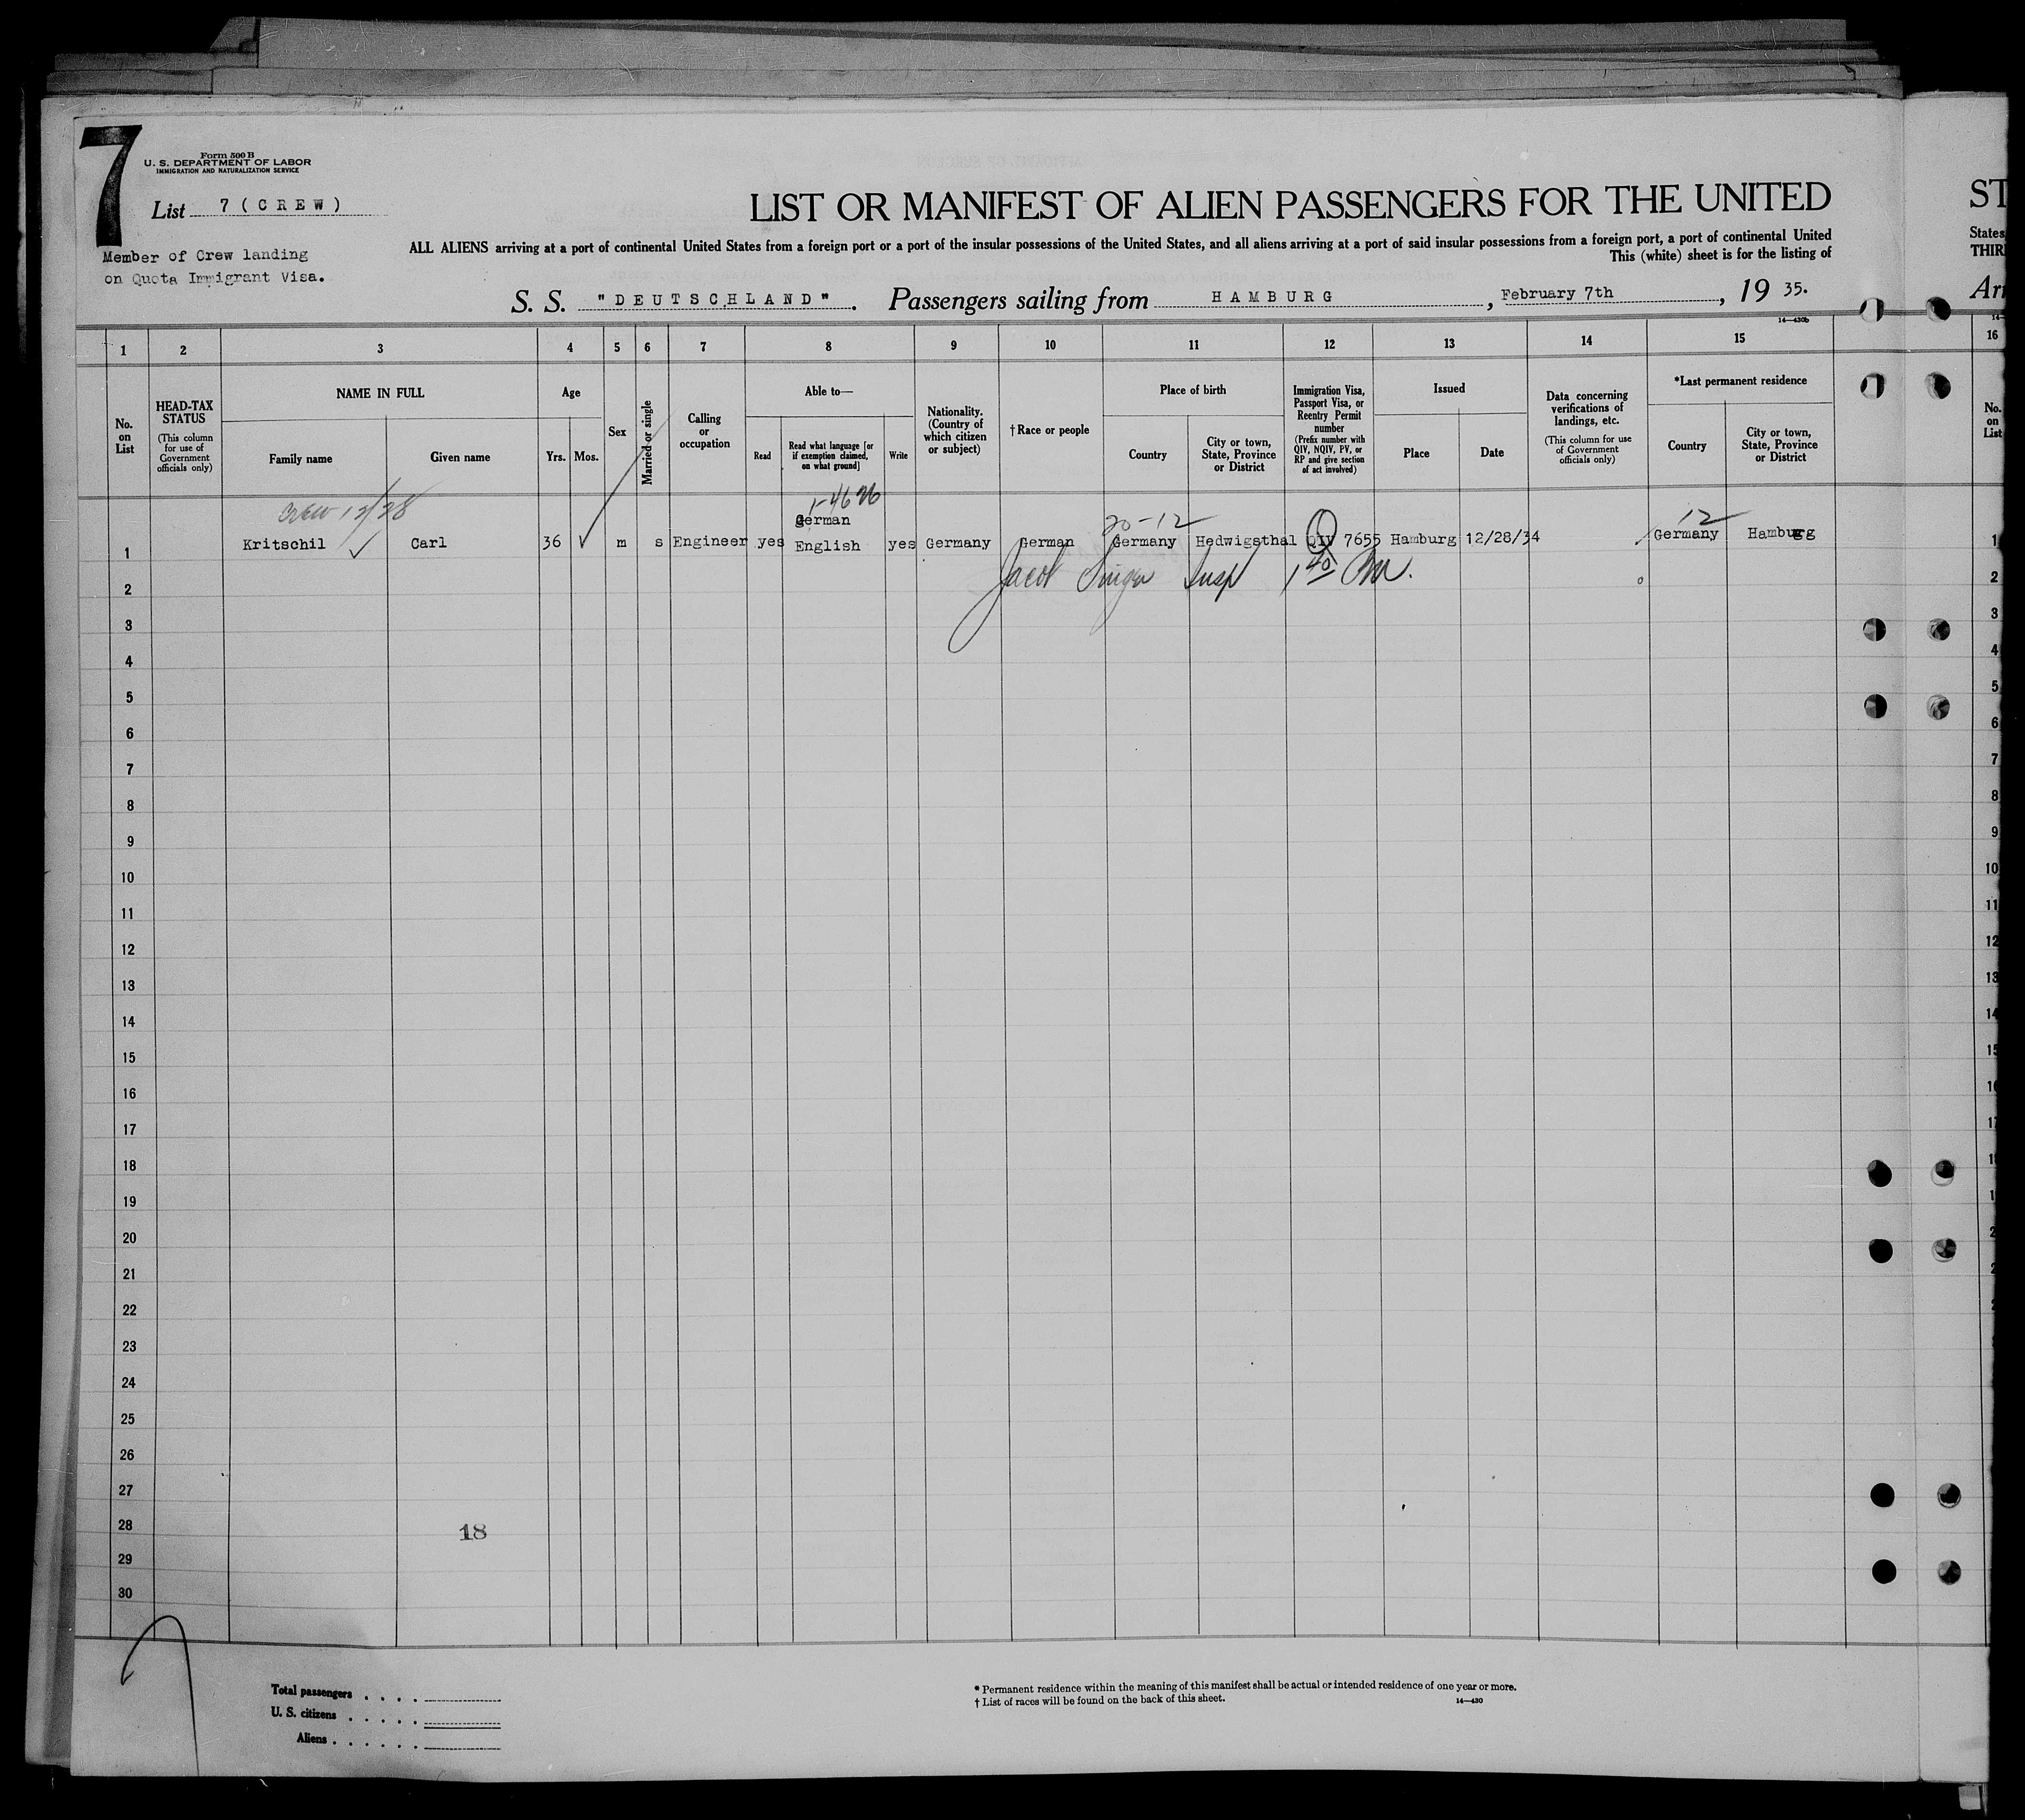 7
Form 500 B
U. S. DEPARTMENT OF LABOR
IMMIGRATION AND NATURALIZATION SERVICE
List 7 (CREW)
Member of Crew landing
on Quota Immigrant Visa.
LIST OR MANIFEST OF ALIEN PASSENGERS FOR THE UNITED
ALL ALIENS arriving at a port of continental United States from a foreign port or a port of the insular possessions of the United States, and all aliens arriving at a port of said insular possessions from a foreign port, a port of continental United
This (white) sheet is for the listing of
S. S. "DEUTSCHLAND". Passengers sailing from HAMBURG, February 7th, 19 35.
ST
States
THIR
Arr
14—430b
1 2 3 4 5 6 7 8 9 10 11 12 13 14 15 16
No. on List
HEAD-TAX STATUS (This column for use of Government officials only)
NAME IN FULL
Family name
Given name
Age
Yrs.
Mos.
Sex
Married or single
Calling or occupation
Able to—
Read
Read what language [or if exemption claimed, on what ground]
Write
Nationality. (Country of which citizen or subject)
†Race or people
Place of birth
Country
City or town, State, Province or District
Immigration Visa, Passport Visa, or Reentry Permit number (Prefix number with QIV, NQIV, PV, or RP and give section of act involved)
Issued
Place
Date
Data concerning verifications of landings, etc. (This column for use of Government officials only)
*Last permanent residence
Country
City or town, State, Province or District
No. on List
crew 12/28
1-4626
20-12
12
German
1 Kritschil Carl 36 m s Engineer yes English yes Germany German Germany Hedwigsthal QIV 7655 Hamburg 12/28/34 Germany Hamburg 1
Jacob Singer Insp 1 40 PM.
2 2
3 3
4 4
5 5
6 6
7 7
8 8
9 9
10 10
11 11
12 12
13 13
14 14
15 15
16
17
18
19
20
21
22
23
24
25
26
27
28
18
29
30
Total passengers
U. S. citizens
Aliens
* Permanent residence within the meaning of this manifest shall be actual or intended residence of one year or more.
† List of races will be found on the back of this sheet.
14—430